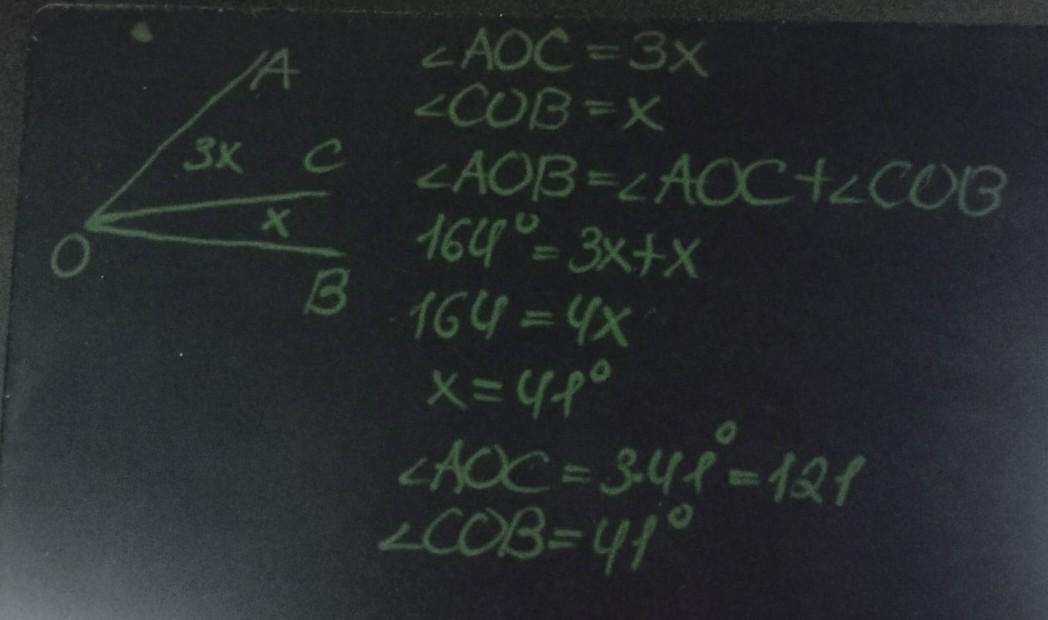 A
3x
C
x
O
B
∠AOC = 3x
∠COB = x
∠AOB = ∠AOC + ∠COB
164° = 3x + x
164 = 4x
x = 41°
∠AOC = 3·41° = 121
∠COB = 41°